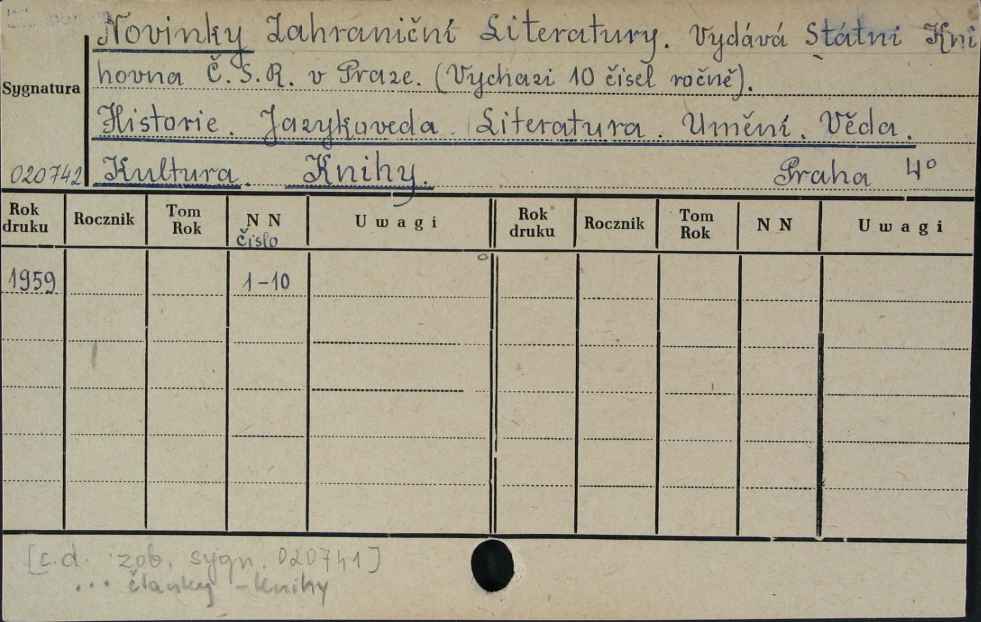 Novinky Zahraniční Literatury. Vydává Státní Kni
hovna Č.S.R. v Praze. (Vychazi 10 čisel ročně).
Sygnatura
Historie. Jazykoveda. Literatura. Umění. Věda.
020742 Kultura. Knihy. Praha 4°
Rok druku Rocznik Tom Rok NN Číslo Uwagi Rok druku Rocznik Tom Rok NN Uwagi
1959 1-10
[c.d. zob. sygn. 020741]
... články - knihy